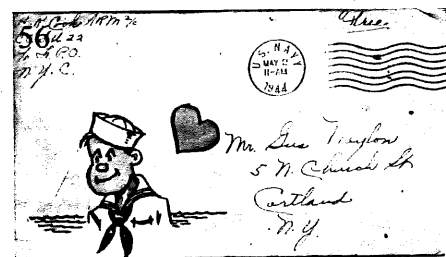 56
Cook ARM 2/c
22
F.P.O.
N.Y.C.
Free
U.S. NAVY
MAY 2
11-AM
1944
Mr. Gus Naylon
5 N. Church St
Cortland
N.Y.